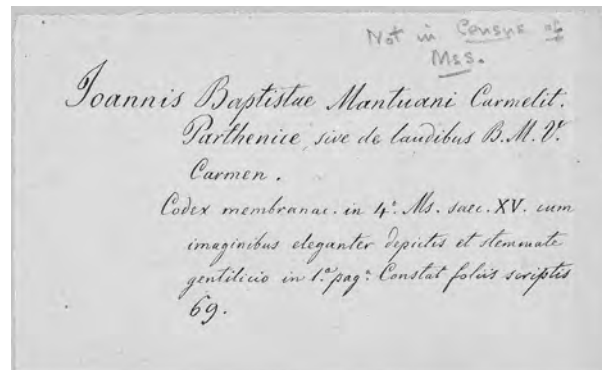 Not in Census of
Mss.
Joannis Baptistae Mantuani Carmelit.
Parthenice, sive de laudibus B. M. V.
Carmen.
Codex membranac. in 4.° Ms. saec. XV. cum
imaginibus eleganter depictis et stemmate
gentilicio in 1.ª pag.ª Constat foliis scriptis
69.